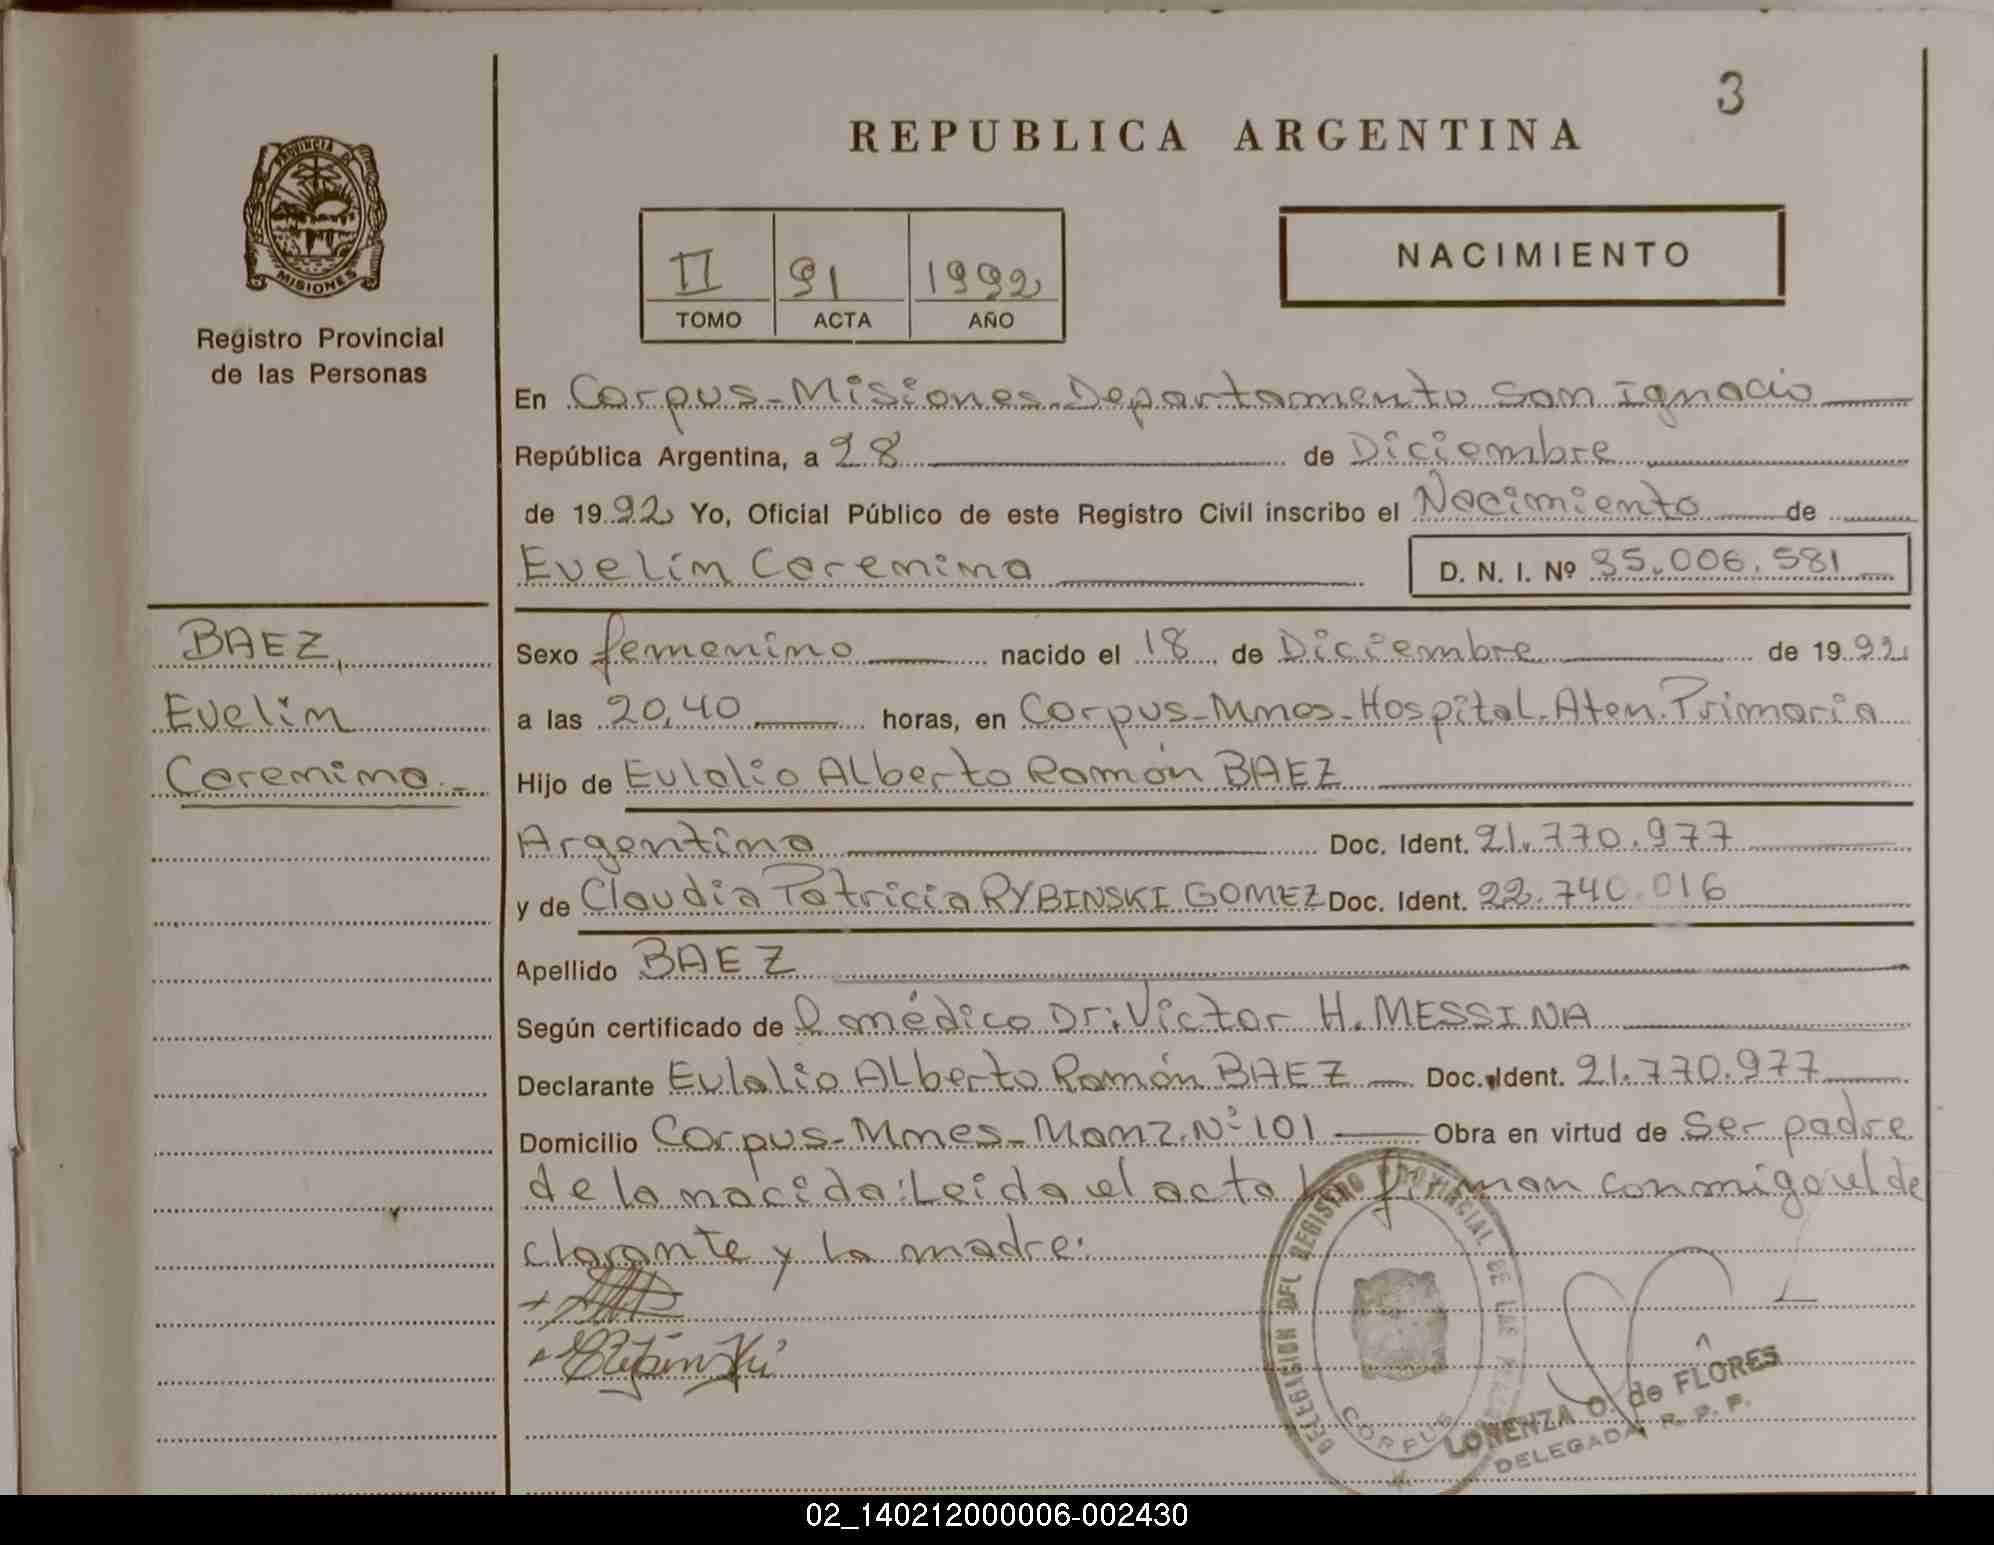 3
REPUBLICA ARGENTINA
PROVINCIA DE
MISIONES
Registro Provincial
de las Personas
II 91 1992
TOMO ACTA AÑO
NACIMIENTO
En Corpus-Misiones-Departamento San Ignacio
República Argentina, a 28 de Diciembre
de 1992 Yo, Oficial Público de este Registro Civil inscribo el Nacimiento de
Evelin Coremina D. N. I. Nº 35.006.581
BAEZ,
Evelin
Coremina.-
Sexo femenino nacido el 18 de Diciembre de 1992
a las 20,40 horas, en Corpus-Mnes-Hospital-Aten.Primaria
Hijo de Eulalio Alberto Ramón BAEZ
Argentino Doc. Ident. 21.770.977
y de Claudia Patricia RYBINSKI GOMEZ Doc. Ident. 22.740.016
Apellido BAEZ
Según certificado de médico Dr: Victor H. MESSINA
Declarante Eulalio Alberto Ramón BAEZ Doc. Ident. 21.770.977
Domicilio Corpus-Mnes-Manz.Nº 101 Obra en virtud de Ser padre
de la nacida: Leida el acta firman conmigo el de
clarante y la madre.
DELEGACION DEL REGISTRO PROVINCIAL DE LAS
CORPUS
LORENZA O. de FLORES
DELEGADA R. P. P.
02_140212000006-002430